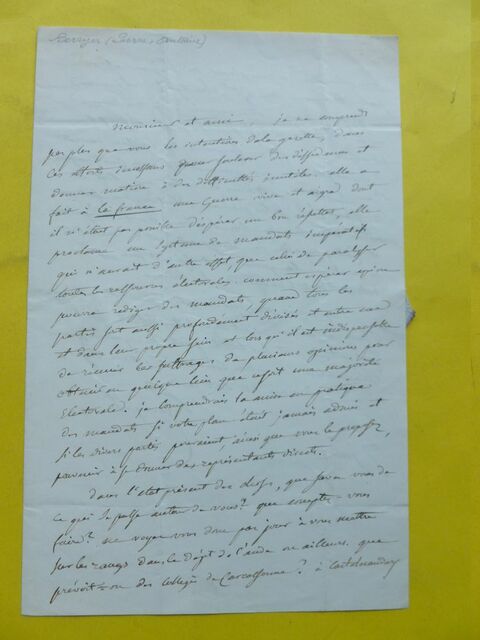 Berryer (Pierre-Antoine)
Monsieur et ami, je ne comprends
pas plus que vous les intentions de la gazette, dans
ces efforts incessans pour soulever des dissidences et
donner matière à des difficultés inutiles. elle a
fait à la france une guerre vive et aigre dont
il n'était pas possible d'espérer un bon résultat, elle
proclame un système de mandats impératifs
qui n'aurait d'autre effet que celui de paralyser
toutes les ressources électorales. comment espérer qu'on
pourra rédiger des mandats, quand tous les
partis sont aussi profondément divisés et entre eux
et dans leur propre sein et lorsqu'il est indispensable
de réunir les suffrages de plusieurs opinions pour
obtenir en quelque lieu que ce soit une majorité
Electorale. je comprendrais la mise en pratique
des mandats si votre plan était jamais admis et
si les divers partis pouvaient, ainsi que vous le proposez,
parvenir à se donner des représentants directs.
Dans l'état présent des choses, que savez vous de
ce qui se passe autour de vous? que comptez vous
faire? ne voyez vous donc pas jour à vous mettre
sur les rangs dans le dépt de l'aude ou ailleurs. que
prévoit-on des collèges de Carcassonne? à Castelnaudary